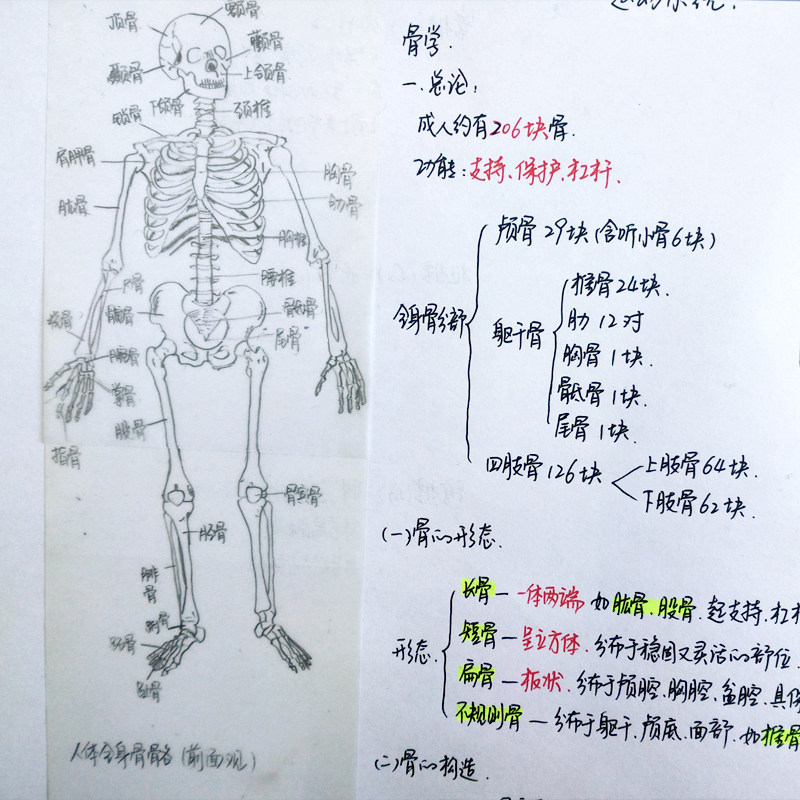 顶骨
额骨
颧骨
颞骨
上颌骨
下颌骨
颈椎
锁骨
肩胛骨
胸骨
肱骨
肋骨
胸椎
腰椎
尺骨
桡骨
髋骨
骶骨
尾骨
腕骨
掌骨
股骨
指骨
髌骨
胫骨
腓骨
跗骨
跖骨
趾骨
人体全身骨骼名(前面观)
骨学.
一.总论:
成人约有206块骨.
功能:支持、保护、杠杆.
全身骨分部
颅骨29块(含听小骨6块)
躯干骨
椎骨24块.
肋12对
胸骨1块.
骶骨1块.
尾骨1块.
四肢骨126块
上肢骨64块.
下肢骨62块.
(一)骨的形态.
形态.
长骨—一体两端 如肱骨、股骨.起支持、杠
短骨—呈立方体.分布于稳固又灵活的部位.
扁骨—板状.分布于颅腔、胸腔、盆腔.具保
不规则骨—分布于躯干、颅底、面部.如椎骨
(二)骨的构造.